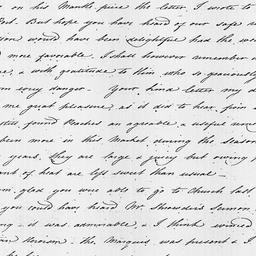 on his Mantle piece the letter, I wrote to
But hope you have heard of our safe
would have been delightful had the
more favorable. I shall however remember
& with gratitude to Him who so graciously
every danger - Your kind letter my
me great pleasure, as it did to hear from
found Peaches an agreeable & useful
been more in this Market during the season
years. They are large & juicy but owing
of heat are less sweet than usual -
glad you were able to go to Church last
you could have heard Mr. Sermon
it was admirable, & I think
Heroism - the Marquis was present & I